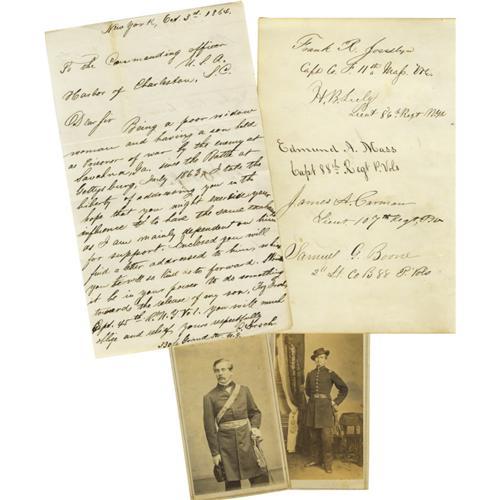 New York, Oct 3rd, 1864.
To the Commanding officer
U.S.A.
Harbor of Charleston, S.C.
Dear Sir
Being a poor widow
woman and having a son held
as Prisoner of war by the enemy at
Savahna Ga. since the Battle at
Gettysburg, July 1863, I take the
liberty of addressing you in the
hope that you might use your
influence to have the same
as I am mainly dependent on him
for support. Enclosed you will
find a letter addressed to him which
you to forward.
it be in your power to do something
toward the release of my son,
Capt. 45th N.Y. Vol. you will much
oblige and yours respectfully
Grand St. N.Y.
Frank R. Josselyn
Capt Co. F. 11th Mass. Vols.
Lieut 86th Regt
Edmund A. Mass
Capt 88th Regt P. Vols
James A. Carman
Lieut 107th Regt, PV
Samuel G. Boone
2d Lt Co B 88 P Vols